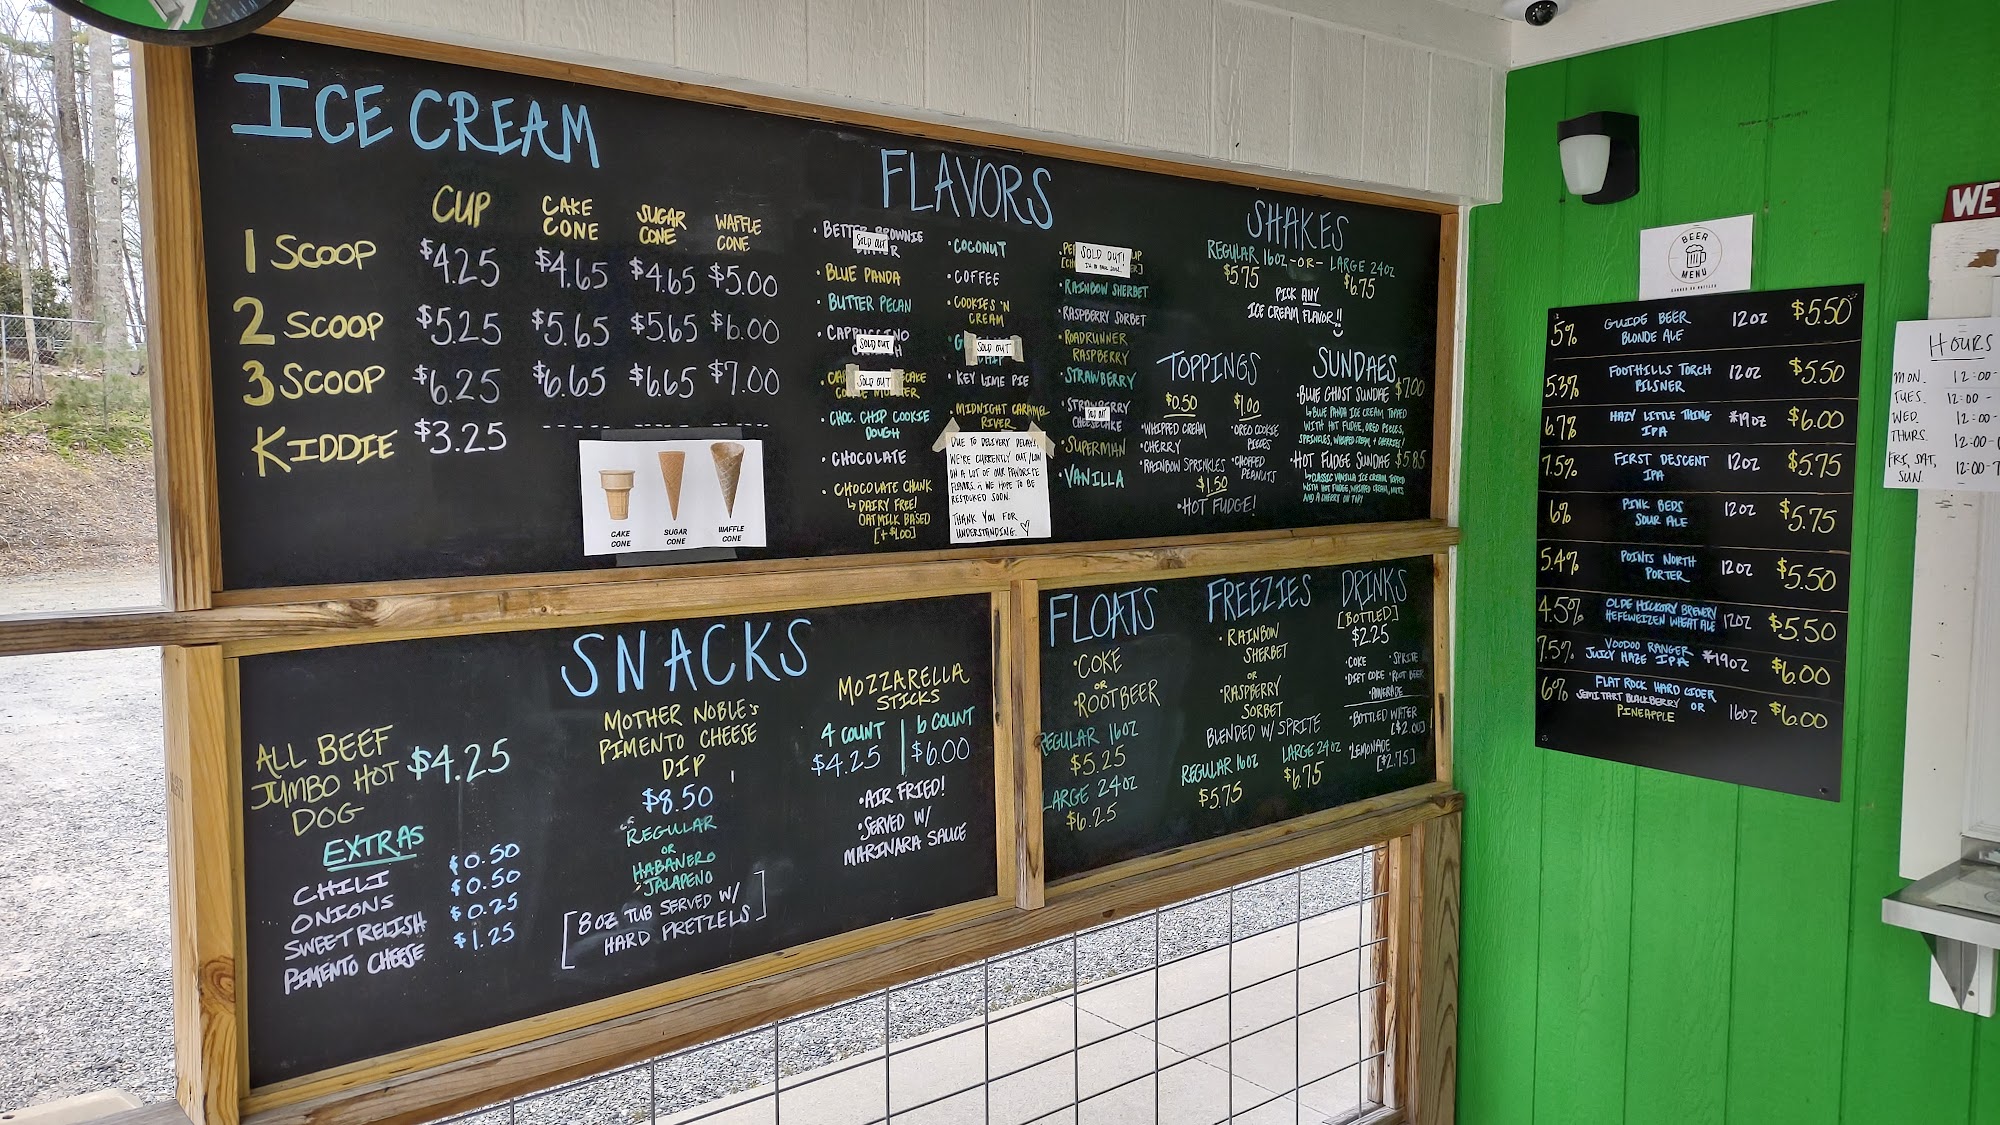 ICE CREAM
CUP
CAKE CONE
SUGAR CONE
WAFFLE CONE
1 SCOOP $4.25 $4.65 $4.65 $5.00
2 SCOOP $5.25 $5.65 $5.65 $6.00
3 SCOOP $6.25 $6.65 $6.65 $7.00
KIDDIE $3.25
CAKE CONE
SUGAR CONE
WAFFLE CONE
FLAVORS
• BETTER BROWNIE
SOLD OUT
• BLUE PANDA
• BUTTER PECAN
• CAPPUCCINO
SOLD OUT
SOLD OUT
• CHOC. CHIP COOKIE
DOUGH
• CHOCOLATE
• CHOCOLATE CHUNK
↳ DAIRY FREE!
OATMILK BASED
[+ $1.00]
• COCONUT
• COFFEE
• COOKIES 'N
CREAM
SOLD OUT
• KEY LIME PIE
• MIDNIGHT CARAMEL
RIVER
DUE TO DELIVERY DELAYS,
WE'RE CURRENTLY OUT/LOW
ON A LOT OF OUR FAVORITE
FLAVORS. WE HOPE TO BE
RESTOCKED SOON.
THANK YOU FOR
UNDERSTANDING. ♡
SOLD OUT!
• RAINBOW SHERBET
• RASPBERRY SORBET
• ROADRUNNER
RASPBERRY
• STRAWBERRY
• STRAWBERRY
CHEESECAKE
SOLD OUT
• SUPERMAN
• VANILLA
SHAKES
REGULAR 16OZ -OR- LARGE 24OZ
$5.75 $6.75
PICK ANY
ICE CREAM FLAVOR!!
TOPPINGS
$0.50
• WHIPPED CREAM
• CHERRY
• RAINBOW SPRINKLES
$1.00
• OREO COOKIE
PIECES
• CHOPPED
PEANUTS
$1.50
• HOT FUDGE!
SUNDAES
• BLUE GHOST SUNDAE $7.00
↳ BLUE PANDA ICE CREAM TOPPED
WITH HOT FUDGE, OREO PIECES,
SPRINKLES, WHIPPED CREAM + CHERRIES!
• HOT FUDGE SUNDAE $5.85
↳ CLASSIC VANILLA ICE CREAM TOPPED
WITH HOT FUDGE, WHIPPED CREAM, NUTS
AND A CHERRY ON TOP!
SNACKS
ALL BEEF
JUMBO HOT
DOG
$4.25
EXTRAS
CHILI $0.50
ONIONS $0.50
SWEET RELISH $0.25
PIMENTO CHEESE $1.25
MOTHER NOBLE'S
PIMENTO CHEESE
DIP
$8.50
REGULAR
OR
HABANERO
JALAPENO
[8OZ TUB SERVED W/
HARD PRETZELS]
MOZZARELLA
STICKS
4 COUNT | 6 COUNT
$4.25 | $6.00
• AIR FRIED!
• SERVED W/
MARINARA SAUCE
FLOATS
• COKE
OR
• ROOTBEER
REGULAR 16OZ
$5.25
LARGE 24OZ
$6.25
FREEZIES
• RAINBOW
SHERBET
OR
• RASPBERRY
SORBET
BLENDED W/ SPRITE
REGULAR 16OZ
$5.75
LARGE 24OZ
$6.75
DRINKS
[BOTTLED]
$2.25
• COKE • SPRITE
• DIET COKE • ROOT BEER
• POWERADE
• BOTTLED WATER
[$2.00]
• LEMONADE
[$2.75]
BEER
MENU
CANNED OR BOTTLED
5% GUIDE BEER
BLONDE ALE 12OZ $5.50
5.3% FOOTHILLS TORCH
PILSNER 12OZ $5.50
6.7% HAZY LITTLE THING
IPA *19OZ $6.00
7.5% FIRST DESCENT
IPA 12OZ $5.75
6% PINK BEDS
SOUR ALE 12OZ $5.75
5.4% POINTS NORTH
PORTER 12OZ $5.50
4.5% OLDE HICKORY BREWERY
HEFEWEIZEN WHEAT ALE 12OZ $5.50
7.5% VOODOO RANGER
JUICY HAZE IPA *19OZ $6.00
6% FLAT ROCK HARD CIDER
SEMI TART BLACKBERRY OR
PINEAPPLE 16OZ $6.00
WE
HOURS
MON. 12:00-
TUES. 12:00-
WED. 12:00-
THURS. 12:00-
FRI, SAT,
SUN. 12:00-7